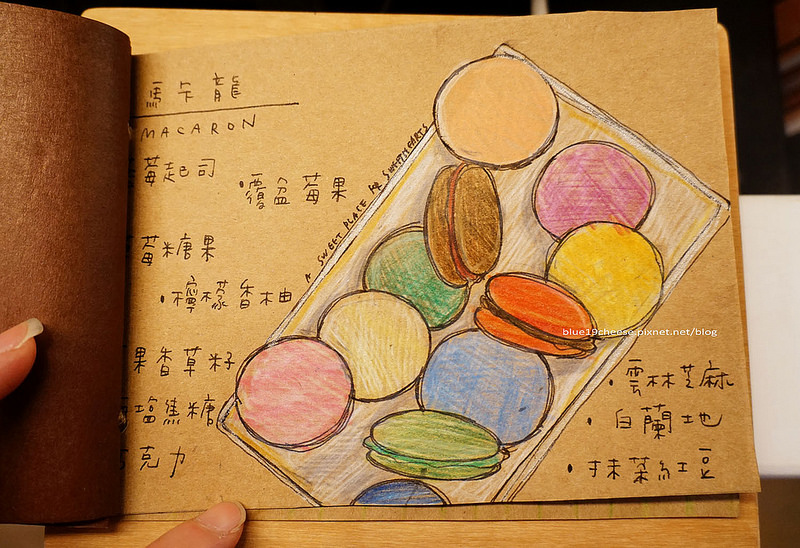 馬卡龍
MACARON
莓起司
•覆盆莓果
莓糖果
•檸檬香柚
果香草籽
塩焦糖
克力
A SWEET PLACE FOR SWEETHEARTS
blue19cheese.pixnet.net/blog
•雲林芝麻
•白蘭地
•抹茶紅豆